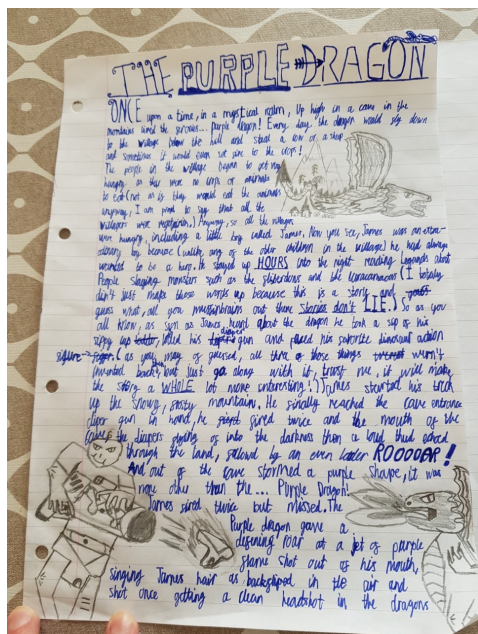 THE PURPLE DRAGON
ONCE upon a time, in a mystical realm, Up high in a cave in the
mountains lived the furious... purple dragon! Every day the dragon would fly down
to the village below the hill and steal a cow or a sheep
and sometimes it would even set fire to the crops!
The people in the village began to get very
hungry, as there were no crops or animals
to eat (not as if they would eat the animals
anyway, I am proud to say that all the
villagers were vegetarian.) Anyway, so all the villagers
were hungry, including a little boy called James. Now you see, James was an extra-
ordinary boy because (unlike any of the other children in the village) he had always
wanted to be a hero. He stayed up HOURS into the night reading Legends about
People slaying monsters such as the and the (I totally
didn't just make those words up because this is a story and
guess what, all you out there stories don't LIE.) So as you
all know, as soon as James heard about the dragon he took a sip of his
sippy cup, diaper gun and placed his favorite dinosaur action
figure (as you may of guessed, all three of those things weren't
invented back, but just go along with it, trust me, it will make
the story a WHOLE lot more interesting!) James started his trek
up the snowy, frosty mountain. He finally reached the cave entrance
diper gun in hand, he fired twice and the mouth of the
cave the diapers going of into the darkness then a loud thud echoed
through the land, followed by an even louder ROOOOAR!
And out of the cave stormed a purple shape, it was
none other than the... Purple Dragon!
James fired twice but missed. The
Purple dragon gave a
defining roar at a jet of purple
flame shot out of his mouth,
singing James hair as backfliped in the air and
shot once getting a clean headshot in the dragons